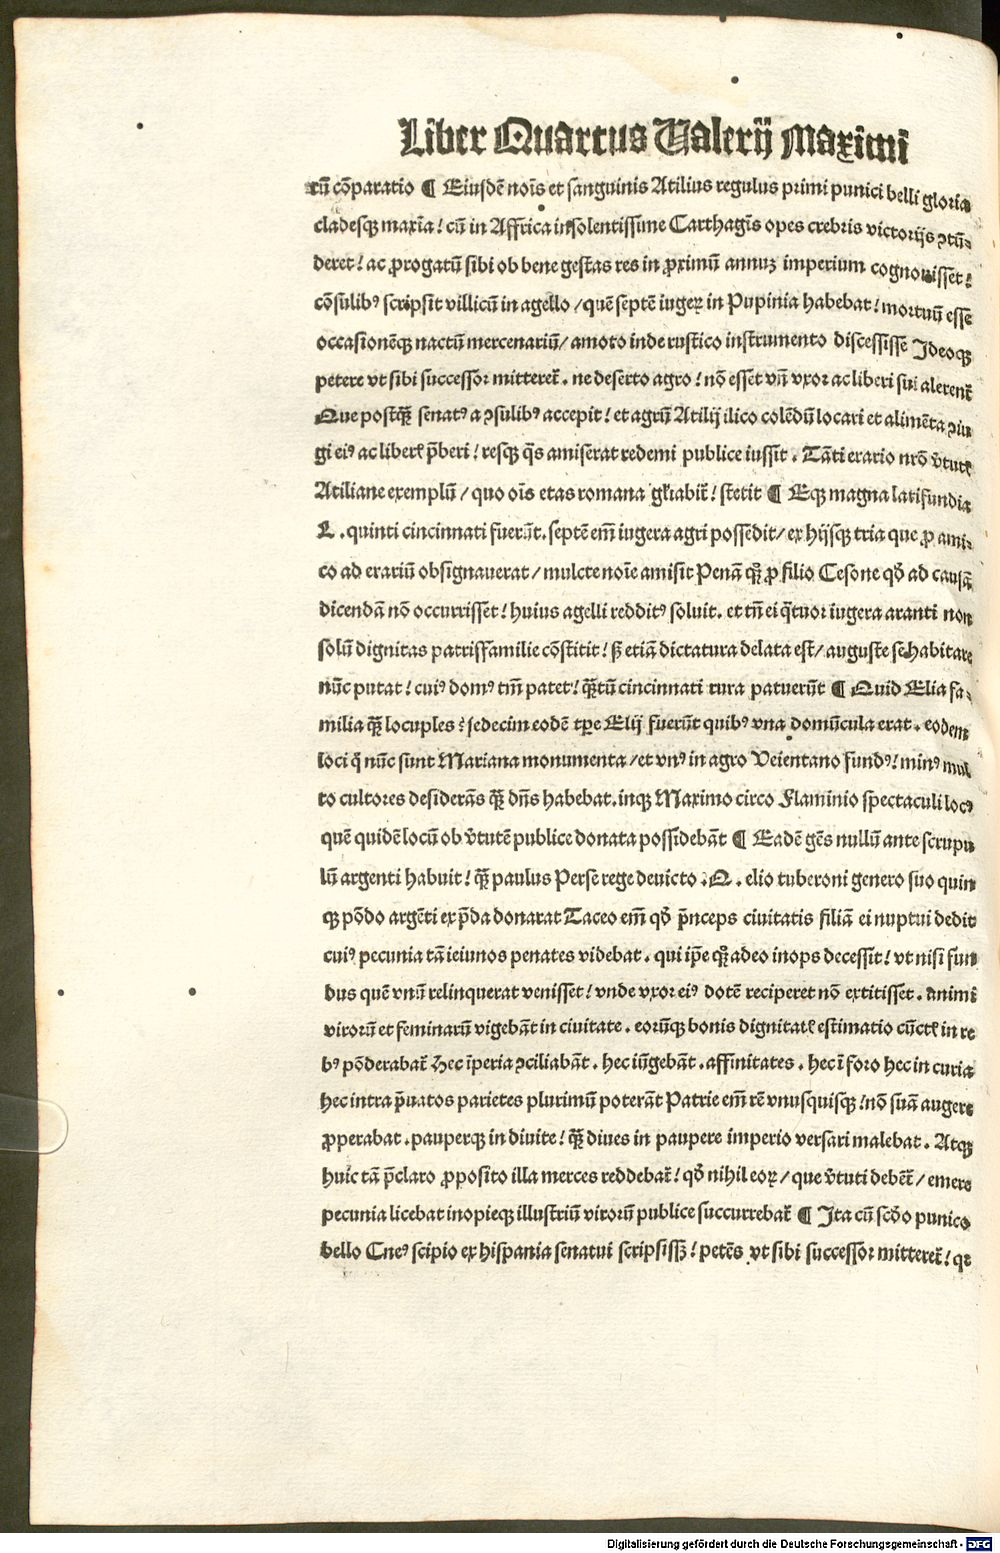 Liber Quartus Valerij Maximi
tū cōparatio ¶ Eiusdē nois̄ et sanguinis Atilius regulus primi punici belli gloria
cladesqꝫ maxīa! cū in Affrica insolentissime Carthagīs opes crebris victorijs ꝯtū⸗
deret! ac ꝓrogatū sibi ob bene gestas res in ꝓximū annuꝫ imperium cognouisset!
cōsulibꝰ scripsit villicū in agello / quē septē iugeꝝ in Pupinia habebat! mortuū esse
occasionēqꝫ nactū mercenariū / amoto inde rustico instrumento discessisse Ideoqꝫ
petere vt sibi successor mittereť . ne deserto agro! nō esset vn̄ vxor ac liberi sui alerenť
Que postqꝫ̄ senatꝰ a ꝯsulibꝰ accepit! et agrū Atilij ilico colēdū locari et alimēta ꝯiu
gi eiꝰ ac liberꝭ p̄beri! resqꝫ q̄s amiserat redemi publice iussit . Tāti erario nr̄o v̄tutꝭ
Atiliane exemplū / quo oīs etas romana gl̄iabiť! stetit ¶ Eqꝫ magna latifundia
L . quinti cincinnati fuerūt . septē em̄ iugera agri possedit / ex hijsqꝫ tria que ꝓ ami⸗
co ad erariū obsignauerat / mulcte noīe amisit Penā qꝫ ꝓ filio Cesone qd̄ ad causā
dicendā nō occurrisset! huius agelli redditꝰ soluit . et tn̄ ei q̄tuor iugera aranti non
solū dignitas patrisfamilie cōstitit! sꝫ etiā dictatura delata est / auguste se habitare
nūc putat! cuiꝰ domꝰ tm̄ patet! qꝫ̄tū cincinnati rura patuerūt ¶ Quid Elia fa⸗
milia qꝫ̄ locuples? sedecim eodē tp̄e Elij fuerūt quibꝰ vna domūcula erat . eodem
loci q̄ nūc sunt Mariana monumenta / et vnꝰ in agro Veientano fundꝰ! minꝰ mul
to cultores desiderās qꝫ̄ dn̄s habebat . inqꝫ Maximo circo Flaminio spectaculi locꝰ
quē quidē locū ob v̄tutē publice donata possidebāt ¶ Eadē gēs nullū ante scrupu
lū argenti habuit! qꝫ̄ paulus Perse rege deuicto . Q . elio tuberoni genero suo quin
qꝫ pōdo argēti ex p̄da donarat Taceo em̄ qd̄ p̄nceps ciuitatis filiā ei nuptui dedit
cuiꝰ pecunia tā ieiunos penates videbat . qui ip̄e qꝫ adeo inops decessit! vt nisi fun
dus quē vnū relinquerat venisset! vnde vxor eiꝰ dotē reciperet nō extitisset . animi
virorū et feminarū vigebāt in ciuitate . eorūqꝫ bonis dignitatꝭ estimatio cūctꝭ in re
bꝰ pōderabať Hec īperia ꝯciliabāt . hec iūgebāt . affinitates . hec ī foro hec in curia
hec intra p̄uatos parietes plurimū poterāt Patrie em̄ rē vnusquisqꝫ! nō suā augere
ꝓperabat . pauperqꝫ in diuite! qꝫ̄ diues in paupere imperio versari malebat . Atqꝫ
huic tā p̄claro ꝓposito illa merces reddebať! qd̄ nihil eoꝝ / que v̄tuti debēť / emere
pecunia licebat inopieqꝫ illustriū virorū publice succurrebať ¶ Ita cū scd̄o punico
bello Cneꝰ scipio ex hispania senatui scripsissꝫ! petēs vt sibi successor mittereť! qꝛ
Digitalisierung gefördert durch die Deutsche Forschungsgemeinschaft - DFG